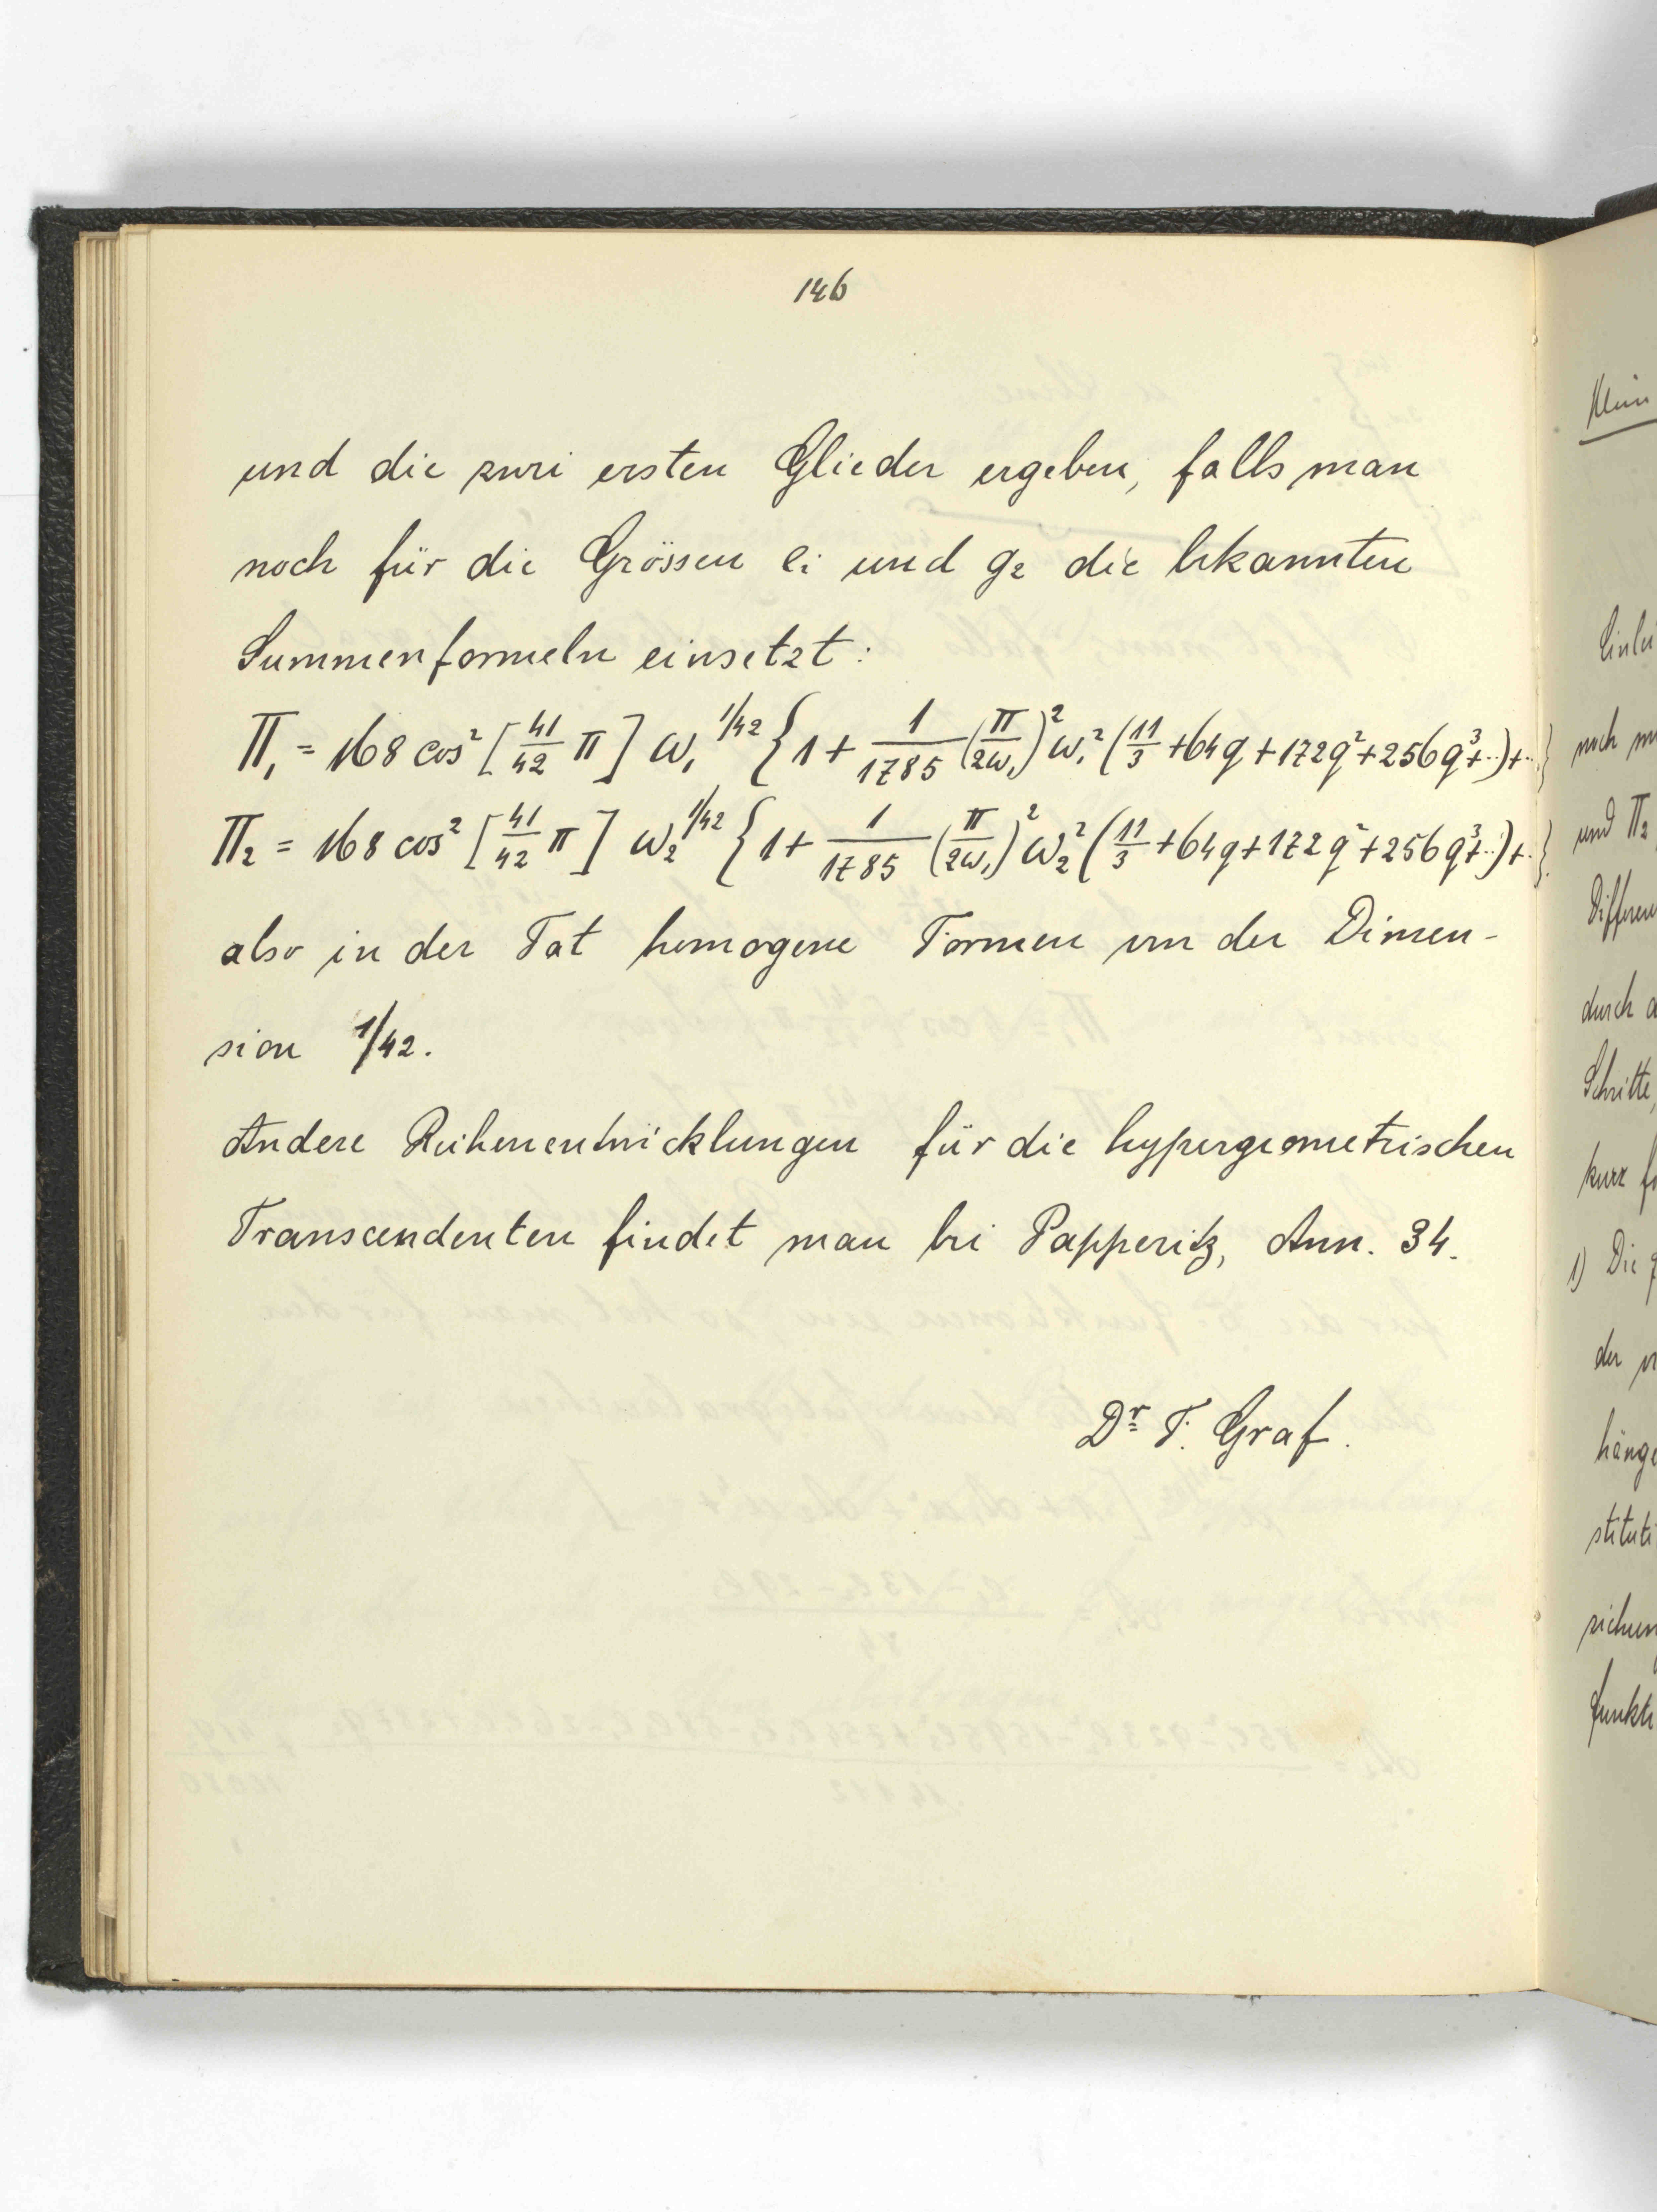 146
und die zwei ersten Glieder ergeben, falls man
noch für die Grössen ei und g₂ die bekannten
Summenformeln einsetzt:
Π₁ = 168 cos² [41/42 π] ω₁^1/42 {1 + 1/1785 (π/2ω₁)² ω₁² (11/3 + 64q + 172q² + 256q³+..)+..}
Π₂ = 168 cos² [41/42 π] ω₂^1/42 {1 + 1/1785 (π/2ω₁)² ω₂² (11/3 + 64q + 172q² + 256q³+..)+..}
also in der Tat homogene Formen von der Dimen-
sion 1/42.
Andere Reihenentwicklungen für die hypergeometrischen
Transcendenten findet man bei Papperitz, Ann. 34.
Dr T. Graf.
Klein
Einlei
noch
und Π₂
Differen
durch
Schritte,
kurz
1) Die
der
hänge
stituti
ziehun
funkti